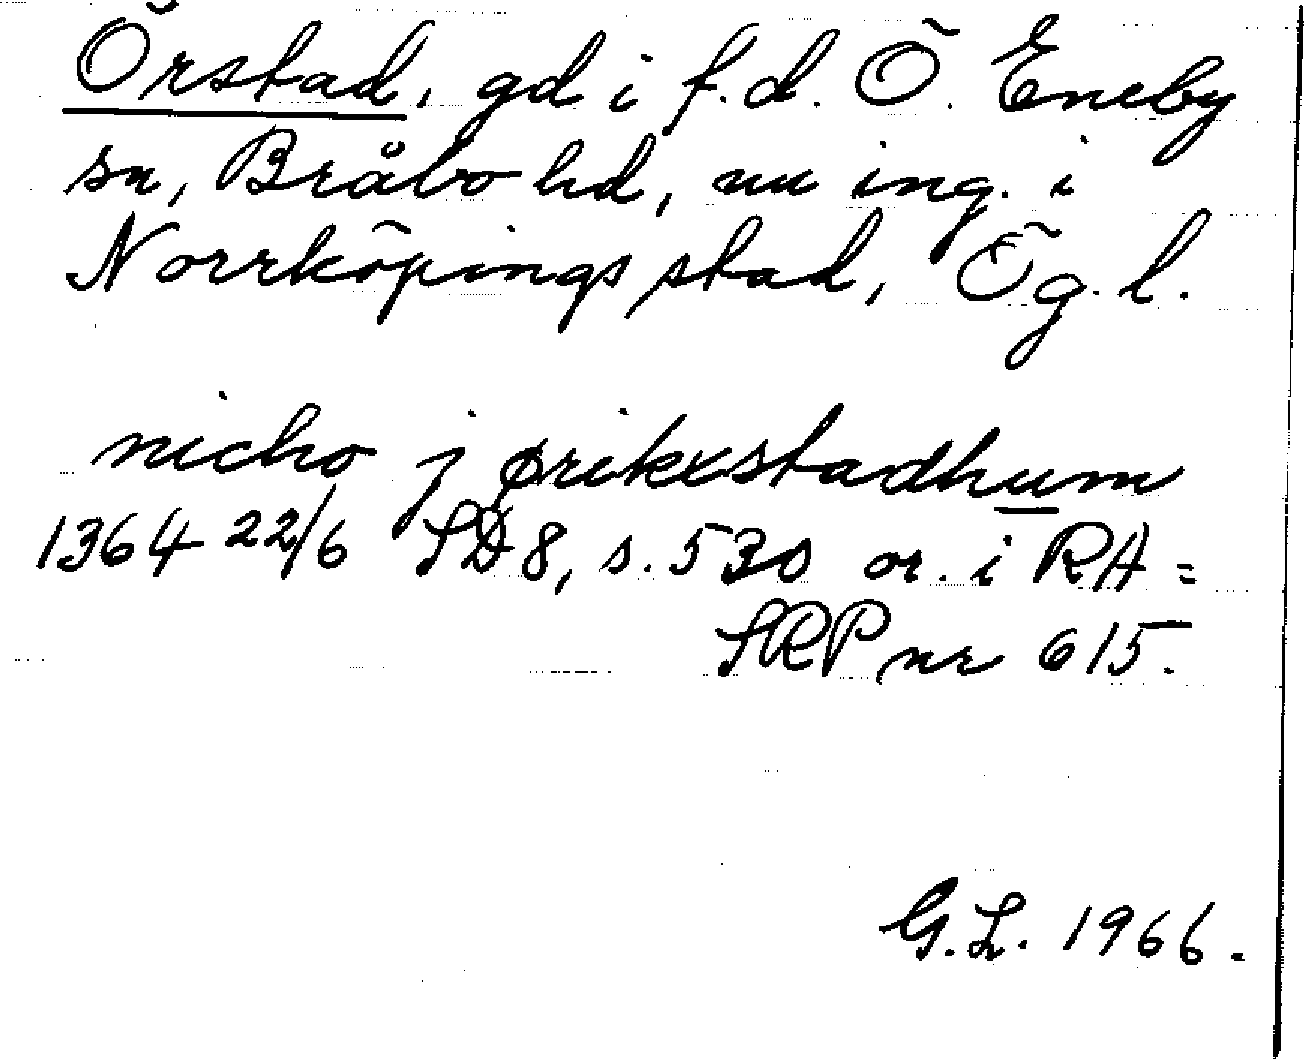 Örstad, gd i f.d. Ö. Eneby
sn, Bråbo hd, nu ing. i
Norrköpings stad, Ög. l.
nicho j ørikxstadhum
1364 22/6 SD 8, s. 530 or. i RA =
SRP nr 615.
G.L. 1966.